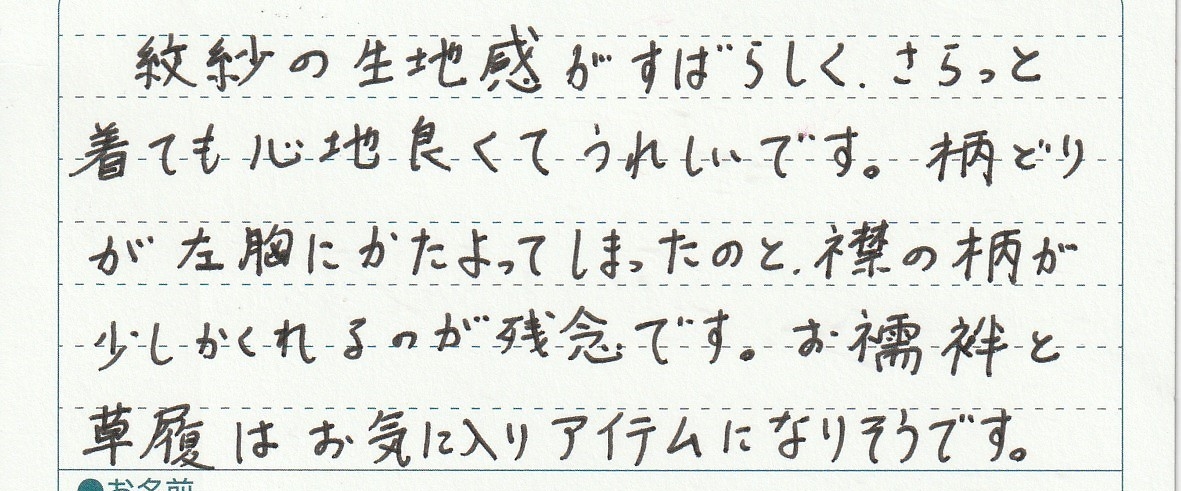 紋紗の生地感がすばらしく、さらっと
着ても心地良くてうれしいです。柄どり
が左胸にかたよってしまったのと、襟の柄が
少しかくれるのが残念です。お襦袢と
草履はお気に入りアイテムになりそうです。
●お名前